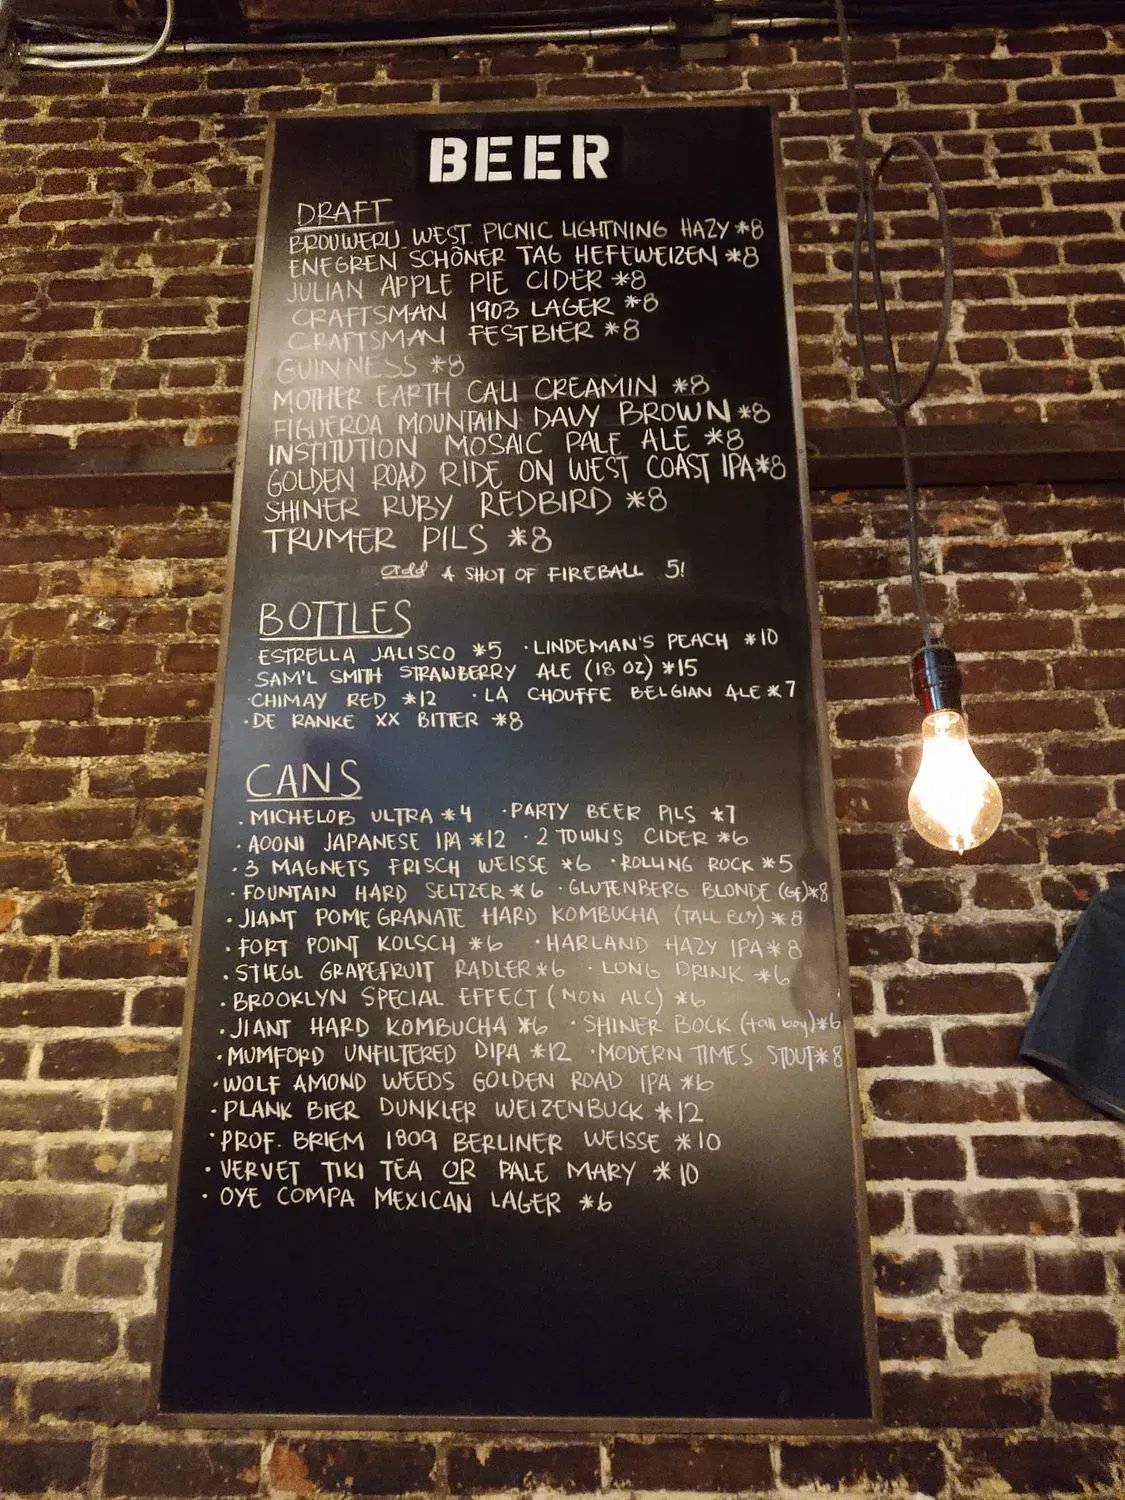 BEER
DRAFT
BROUWERIJ WEST PICNIC LIGHTNING HAZY *8
ENEGREN SCHÖNER TAG HEFEWEIZEN *8
JULIAN APPLE PIE CIDER *8
CRAFTSMAN 1903 LAGER *8
CRAFTSMAN FESTBIER *8
GUINNESS *8
MOTHER EARTH CALI CREAMIN *8
FIGUEROA MOUNTAIN DAVY BROWN *8
INSTITUTION MOSAIC PALE ALE *8
GOLDEN ROAD RIDE ON WEST COAST IPA *8
SHINER RUBY REDBIRD *8
TRUMER PILS *8
add A SHOT OF FIREBALL 5!
BOTTLES
ESTRELLA JALISCO *5 · LINDEMAN'S PEACH *10
· SAM'L SMITH STRAWBERRY ALE (18 OZ) *15
· CHIMAY RED *12 · LA CHOUFFE BELGIAN ALE *7
· DE RANKE XX BITTER *8
CANS
· MICHELOB ULTRA *4 · PARTY BEER PILS *7
· AOONI JAPANESE IPA *12 · 2 TOWNS CIDER *6
· 3 MAGNETS FRISCH WEISSE *6 · ROLLING ROCK *5
· FOUNTAIN HARD SELTZER *6 · GLUTENBERG BLONDE (GF) *8
· JIANT POMEGRANATE HARD KOMBUCHA (TALL BOY) *8
· FORT POINT KOLSCH *6 · HARLAND HAZY IPA *8
· STIEGL GRAPEFRUIT RADLER *6 · LONG DRINK *6
· BROOKLYN SPECIAL EFFECT (NON ALC) *6
· JIANT HARD KOMBUCHA *6 · SHINER BOCK (tall boy) *6
· MUMFORD UNFILTERED DIPA *12 · MODERN TIMES STOUT *8
· WOLF AMOND WEEDS GOLDEN ROAD IPA *6
· PLANK BIER DUNKLER WEIZENBUCK *12
· PROF. BRIEM 1809 BERLINER WEISSE *10
· VERVET TIKI TEA OR PALE MARY *10
· OYE COMPA MEXICAN LAGER *6